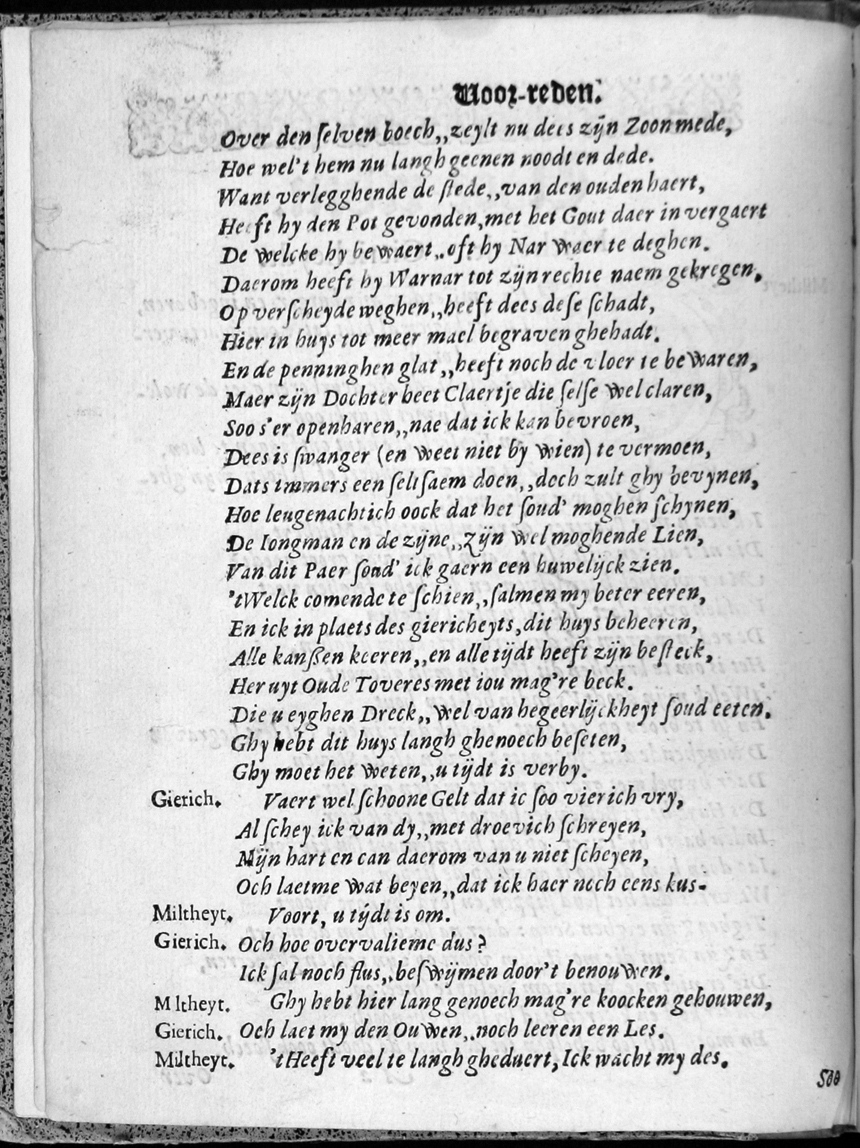 Voor-reden.
Over den ſelven boech,,zeylt nu dees zijn Zoon mede,
Hoe wel't hem nu langh geenen noodt en dede.
Want verlegghende de ſtede,,van den ouden haert,
Heeft hy den Pot gevonden,met het Gout daer in vergaert
De welcke hy bewaert,,oft hy Nar waer te deghen.
Daerom heeft hy Warnar tot zijn rechte naem gekregen,
Op verſcheyde weghen,,heeft dees deſe ſchadt,
Hier in huys tot meer mael begraven ghehadt.
En de penninghen glat,,heeft noch de vloer te bewaren,
Maer zijn Dochter heet Claertje die ſelſe wel claren,
Soo s'er openbaren,,nae dat ick kan bevroen,
Dees is ſwanger (en weet niet by wien) te vermoen,
Dats immers een ſeltſaem doen,,doch zult ghy bevynen,
Hoe leugenachtich oock dat het ſoud' moghen ſchynen,
De Iongman en de zijne,,zijn wel moghende Lien,
Van dit Paer ſoud' ick gaern een huwelijck zien.
'tWelck comende te ſchien,,ſalmen my beter eeren,
En ick in plaets des giericheyts,dit huys beheeren,
Alle kanſſen keeren,,en alle tijdt heeft zijn beſteck,
Her uyt Oude Toveres met iou mag're beck.
Die u eyghen Dreck,,wel van begeerlijckheyt ſoud eeten.
Ghy hebt dit huys langh ghenoech beſeten,
Ghy moet het weten,,u tijdt is verby.
Gierich. Vaert wel ſchoone Gelt dat ic ſoo vierich vry,
Al ſchey ick van dy,,met droevich ſchreyen,
Mijn hart en can daerom van u niet ſcheyen,
Och laetme wat beyen,,dat ick haer noch eens kus-
Miltheyt. Voort, u tijdt is om.
Gierich. Och hoe overvalieme dus?
Ick ſal noch flus,,beſwijmen door't benouwen.
M ltheyt. Ghy hebt hier lang genoech mag're koocken gehouwen,
Gierich. Och laet my den Ouwen,,noch leeren een Les.
Miltheyt. 'tHeeft veel te langh gheduert, Ick wacht my des.
Soo